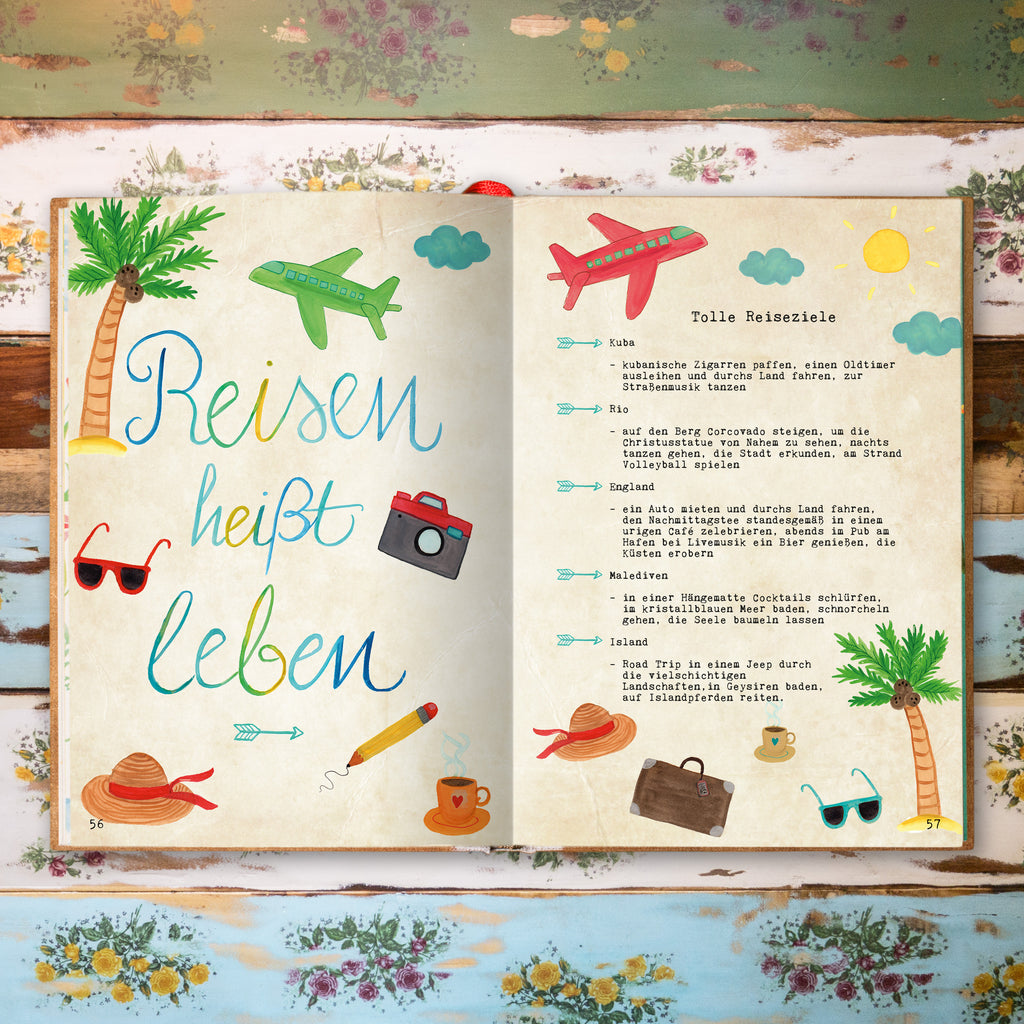 Reisen
heißt
leben
56
Tolle Reiseziele
Kuba
- kubanische Zigarren paffen, einen Oldtimer
ausleihen und durchs Land fahren, zur
Straßenmusik tanzen
Rio
- auf den Berg Corcovado steigen, um die
Christusstatue von Nahem zu sehen, nachts
tanzen gehen, die Stadt erkunden, am Strand
Volleyball spielen
England
- ein Auto mieten und durchs Land fahren,
den Nachmittagstee standesgemäß in einem
urigen Café zelebrieren, abends im Pub am
Hafen bei Livemusik ein Bier genießen, die
Küsten erobern
Malediven
- in einer Hängematte Cocktails schlürfen,
im kristallblauen Meer baden, schnorcheln
gehen, die Seele baumeln lassen
Island
- Road Trip in einem Jeep durch
die vielschichtigen
Landschaften,in Geysiren baden,
auf Islandpferden reiten.
57